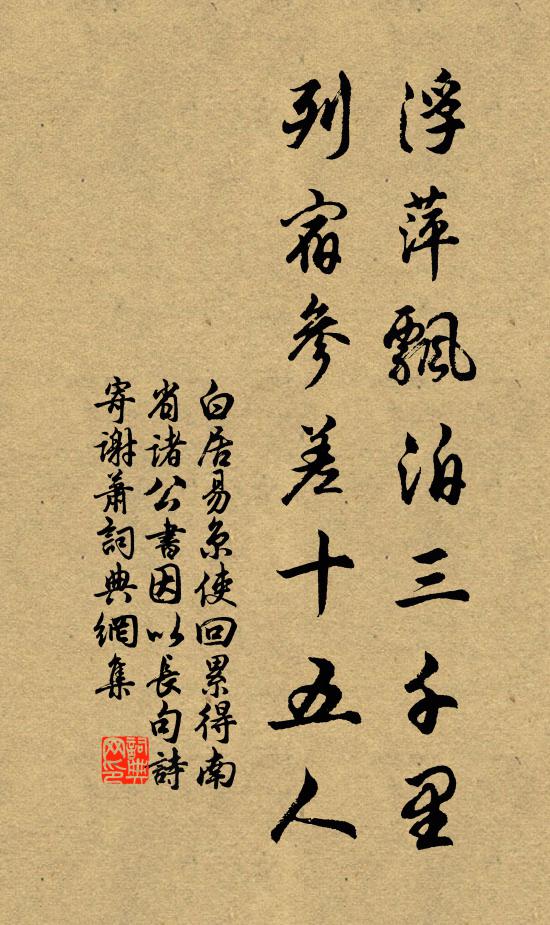 浮萍飄泊三千里
列宿參差十五人
白居易京使回累得南
省諸公書因以長句詩
寄謝蕭詞典網集
詞典
网印